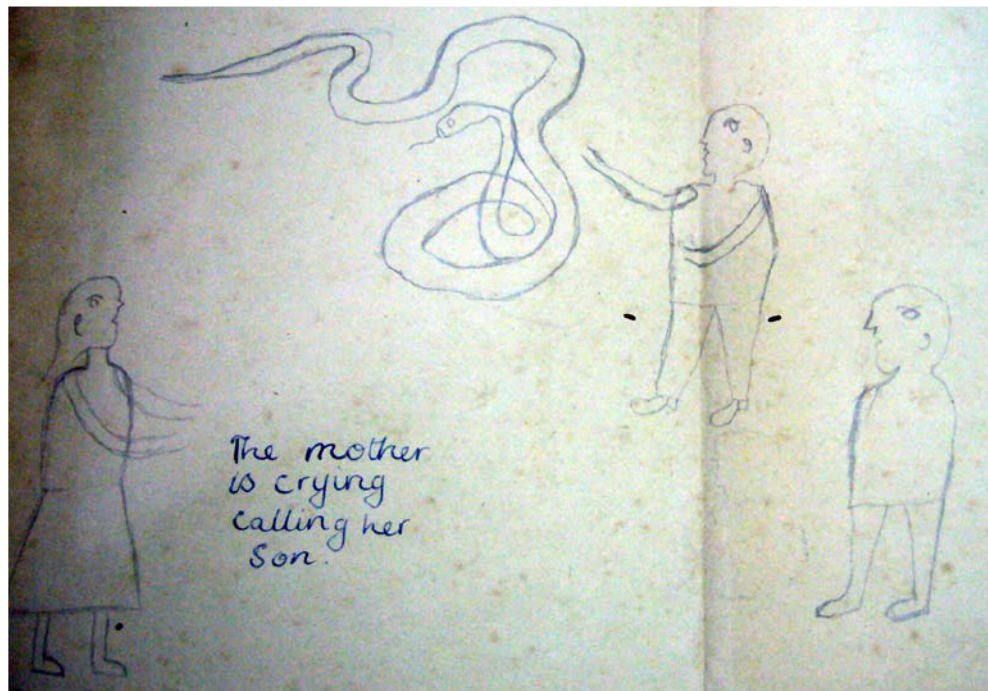 The mother
is crying
calling her
Son.